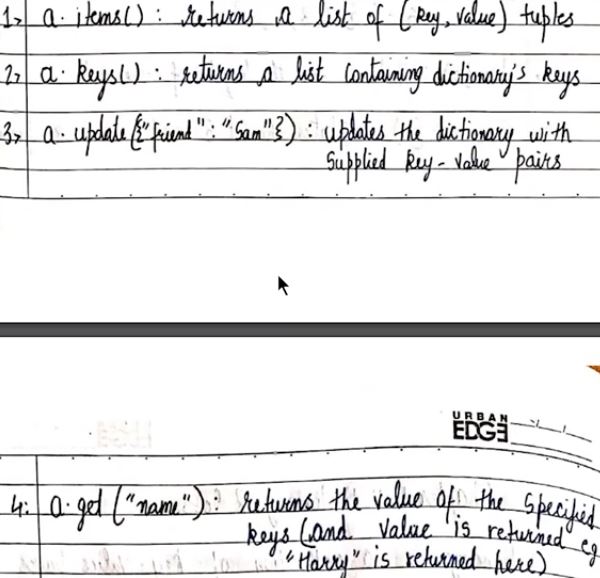 1> a. items() : returns a list of (key, value) tuples
2> a. keys() : returns a list containing dictionary's keys
3> a. update({"friend" : "Sam"}) : updates the dictionary with
supplied key-value pairs
URBAN
EDGE
4: a. get ("name") : returns the value of the specified
keys (and value is returned eg.
"Harry" is returned here)